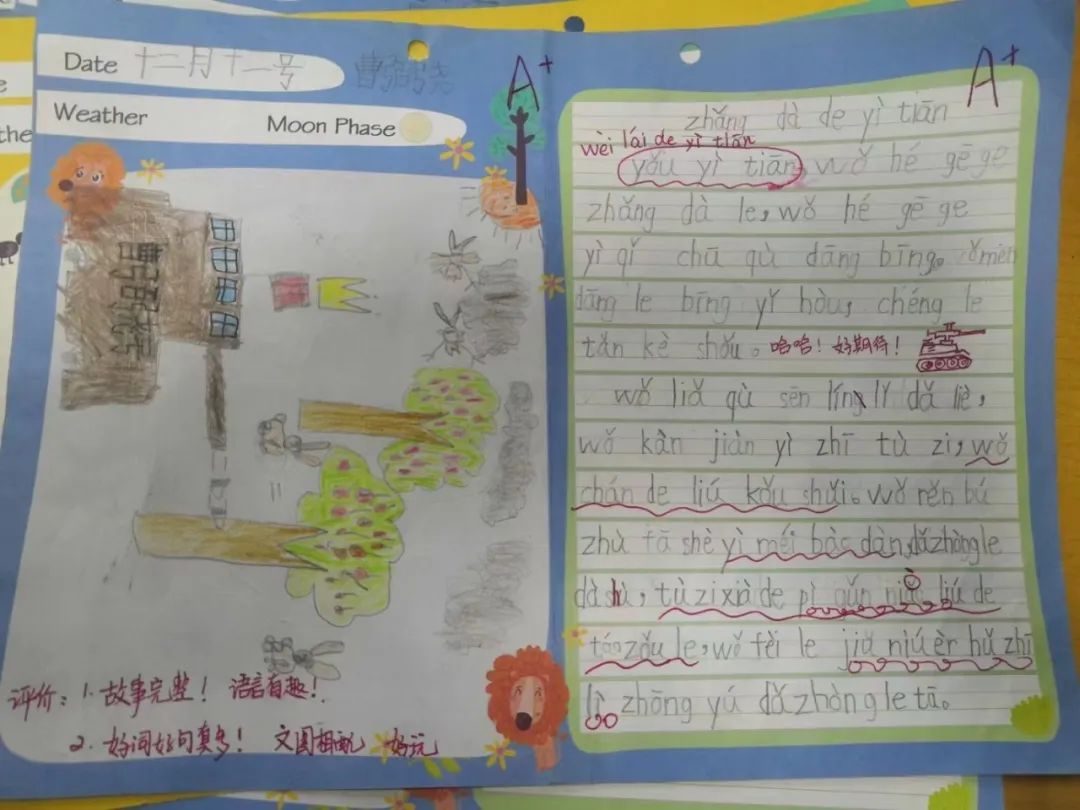 Date 十二月十一号
Weather
Moon Phase
A+
评价：1. 故事完整！ 语言有趣！
2. 好词好句真多！ 文图相配 好玩
A+
zhǎng dà de yì tiān
wèi lái de yì tiān
yǒu yì tiān, wǒ hé gē ge
zhǎng dà le, wǒ hé gē ge
yì qǐ chū qù dāng bīng。 wǒ mén
dāng le bīng yǐ hòu, chéng le
tǎn kè shǒu。 哈哈！好期待！
wǒ liǎ qù sēn lín lǐ dǎ liè,
wǒ kàn jiàn yì zhī tù zi, wǒ
chán de liú kǒu shuǐ。wǒ rěn bú
zhù tā shè yì méi bào dàn, dǎ zhòng le
dà shù, tù zi xià de pì gǔn niào liú de
táo zǒu le, wǒ fèi le jiǔ niú èr hǔ zhī
lì zhōng yú dǎ zhòng le tā。